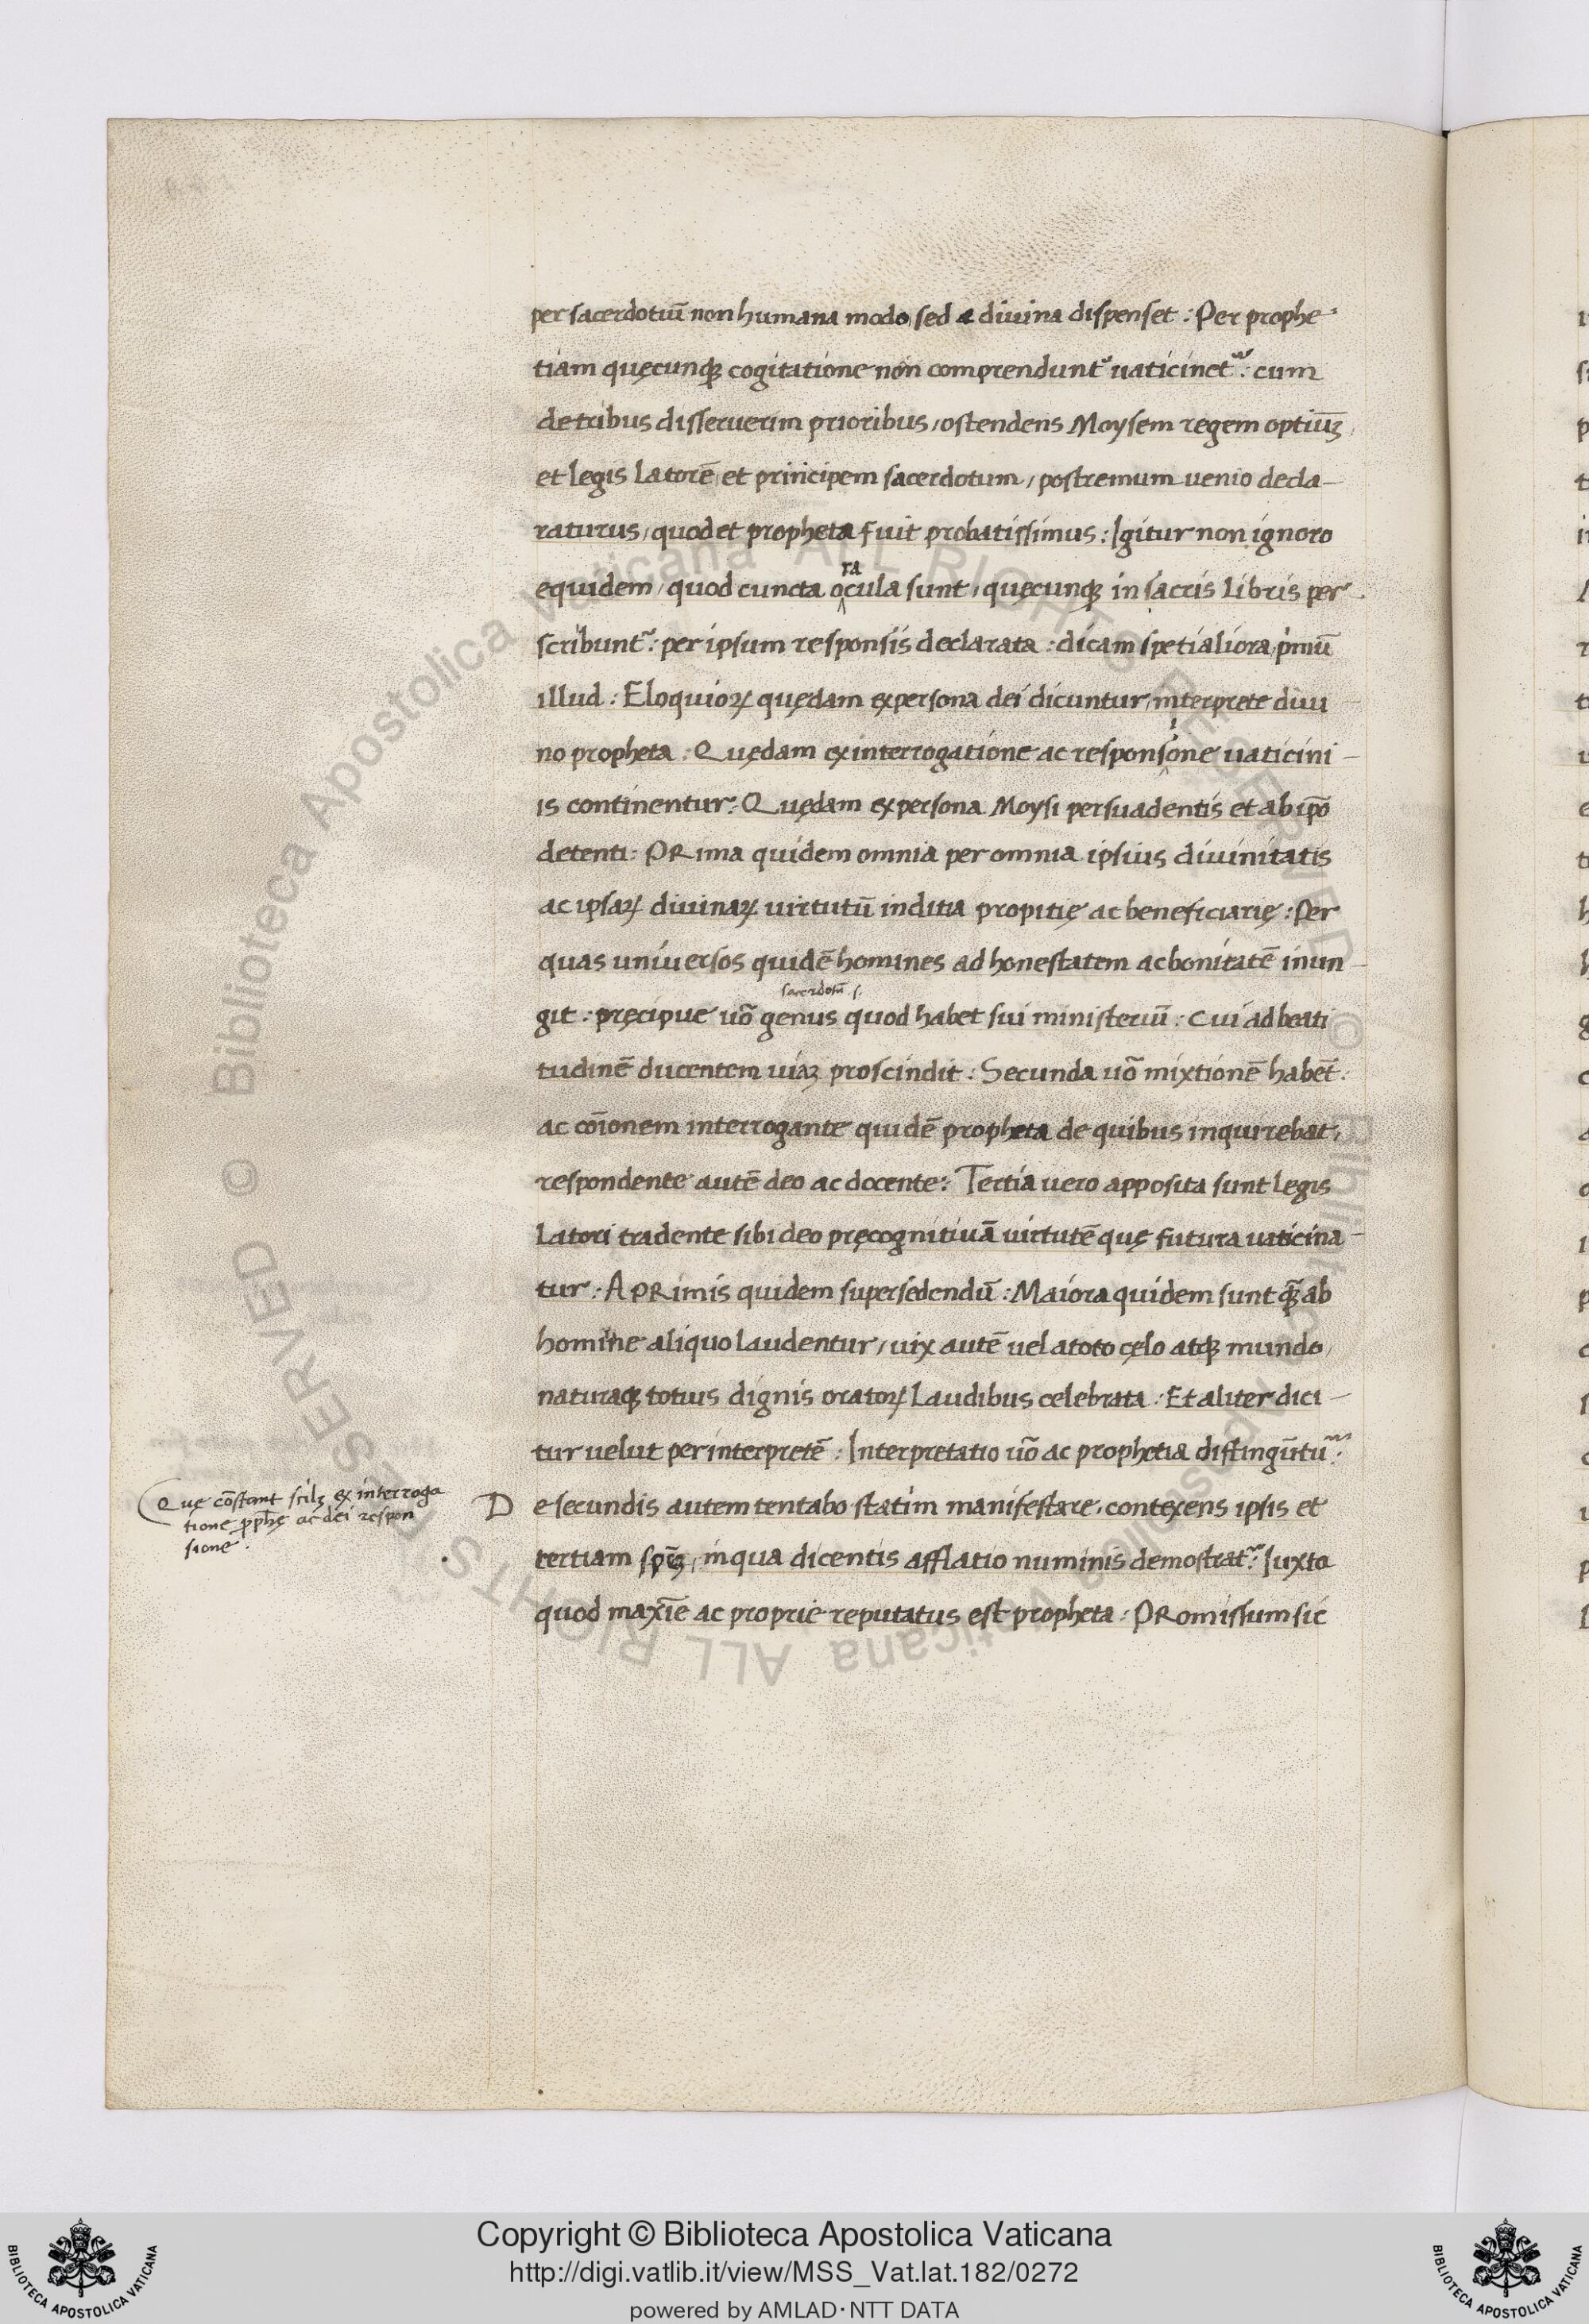 per sacerdotiū non humana modo sed & diuina dispenset : Per prophe
tiam quęcunqꝫ cogitatione non comprendunt᷑ uaticinet᷑ : cum
de tribus disseruerim prioribus / ostendens Moysem regem optiūꝫ
et legis Latorē et principem sacerdotum / postremum uenio decla-
raturus / quod et propheta fuit probatissimus : Igitur non ignoro
ra
equidem / quod cuncta ocula sunt / quęcunqꝫ in sacris Libris per
scribunt᷑ : per ipsum responsis declarata : dicam spetialiora pͥmū
illud : Eloquioꝝ quędam ex persona dei dicuntur / interprete diui-
no propheta : Quędam ex interrogatione ac responsione uaticini-
is continentur : Quędam ex persona Moysi persuadentis et ab ip̄o
detenti : PRima quidem omnia per omnia ipsius diuinitatis
ac ipsaꝝ diuinaꝝ uirtutū inditia propitię ac beneficiarię : Per
quas uniuersos quidē homines ad honestatem ac bonitatē inun-
sacerdotū s.
git : pręcipue uō genus quod habet sui ministeriū : Cui ad beati
tudinē ducentem uiaꝫ proscindit : Secunda uō mixtionē habēt :
ac cōionem interrogante quidē propheta de quibus inquirebat,
respondente autē deo ac docente : Tertia uero apposita sunt Legis
Latori tradente sibi deo pręcognitiuā uirtutē quę futura uaticina-
tur : A PRimis quidem supersedendū : Maiora quidem sunt qꝫ̄ ab
homine aliquo laudentur / uix autē uel a toto cęlo atqꝫ mundo /
naturaqꝫ totius dignis oratoꝝ Laudibus celebrata : Et aliter dici-
tur uelut per interpretē : Interpretatio uō ac prophetia distingūtu᷑ :
Quę cōstant scilꝫ ex interroga
tione ꝓphę ac dei respon
sione .
De secundis autem tentabo statim manifestare . contexens ipsis et
tertiam spēꝫ, in qua dicentis afflatio numinis demostrat᷑ : Iuxta
quod maxīe ac proprie reputatus est propheta : PRomissum sic
Copyright © Biblioteca Apostolica Vaticana
http://digi.vatlib.it/view/MSS_Vat.lat.182/0272
powered by AMLAD·NTT DATA
BIBLIOTECA APOSTOLICA VATICANA
BIBLIOTECA APOSTOLICA VATICANA
© Biblioteca Apostolica Vaticana ALL RIGHTS RESERVED
© Biblioteca Apostolica Vaticana ALL RIGHTS RESERVED